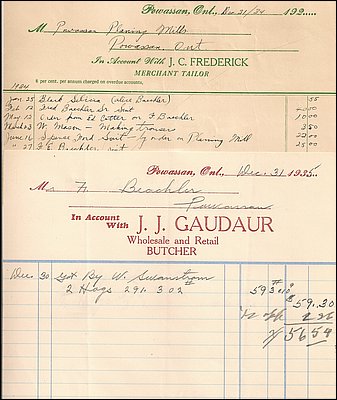 Powassan, Ont., Dec 21/34 193
M Powassan Planing Mills
Powassan, Ont
In Account With J. C. FREDERICK
MERCHANT TAILOR
per cent. per annum charged on overdue accounts.
1934
Jan 25 Black Silicia 55
Feb 12 Fred Baechler Sr. Suit
May 12 Order from Ed Cotter on F Baechler 10 00
W. Mason - Making trousers 3 50
June 16 Spence Ford Suit - by order on Planing Mill 20 00
" 27 F. E. Baechler suit 25 00
Powassan, Ont., Dec. 31 1935
M F. Beachler
Powassan
In Account With J. J. GAUDAUR
Wholesale and Retail
BUTCHER
Dec. 30 Got By W. Swanstrom
2 Hogs 291. 302 593 #
$ 59.30
56 54